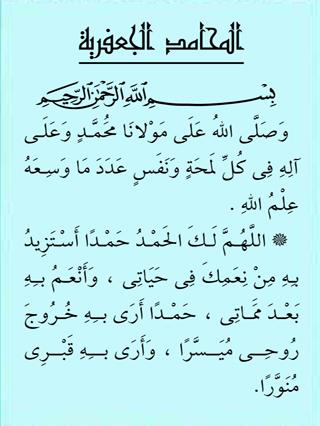 المحامد الجعفرية
بِسْمِ اللَّهِ الرَّحْمَٰنِ الرَّحِيمِ
وَصَلَّى اللهُ عَلَى مَوْلَانَا مُحَمَّدٍ وَعَلَى
آلِهِ فِى كُلِّ لَمْحَةٍ وَنَفَسٍ عَدَدَ مَا وَسِعَهُ
عِلْمُ اللهِ .
❊ اللَّهُمَّ لَكَ الحَمْدُ حَمْدًا أَسْتَزِيدُ
بِهِ مِنْ نِعَمِكَ فِى حَيَاتِى ، وَأَنْعَمُ بِهِ
بَعْدَ مَمَاتِى ، حَمْدًا أَرَى بِهِ خُرُوجَ
رُوحِى مُيَسَّرًا ، وَأَرَى بِهِ قَبْرِى
مُنَوَّرًا.